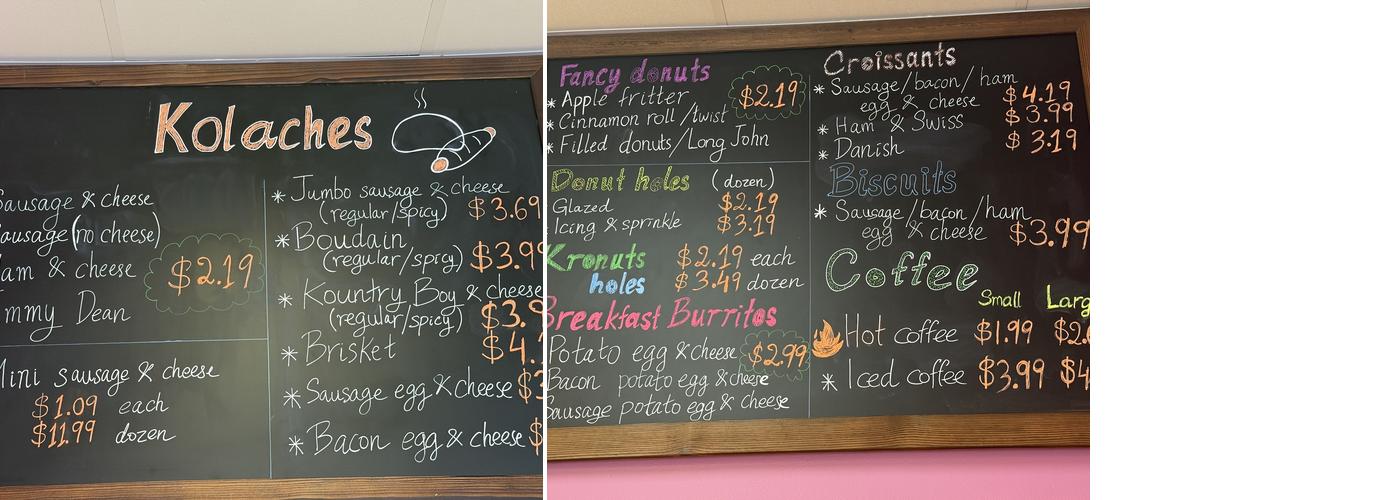 Kolaches
Sausage & cheese
Sausage (no cheese)
Ham & cheese
$2.19
mmy Dean
Mini sausage & cheese
$1.09 each
$11.99 dozen
* Jumbo sausage & cheese
(regular/spicy) $3.69
* Boudain
(regular/spicy) $3.9
* Kountry Boy & cheese
(regular/spicy) $3.9
* Brisket $4.
* Sausage egg & cheese $3
* Bacon egg & cheese $
Fancy donuts
* Apple fritter $2.19
* Cinnamon roll/twist
* Filled donuts/Long John
Donut holes (dozen)
Glazed $2.19
Icing & sprinkle $3.19
Kronuts $2.19 each
holes $3.49 dozen
Breakfast Burritos
Potato egg & cheese $2.99
Bacon potato egg & cheese
Sausage potato egg & cheese
Croissants
* Sausage/bacon/ham
egg & cheese $4.19
* Ham & Swiss $3.99
* Danish $3.19
Biscuits
* Sausage/bacon/ham
egg & cheese $3.99
Coffee
Small Larg
Hot coffee $1.99 $2.
* Iced coffee $3.99 $4